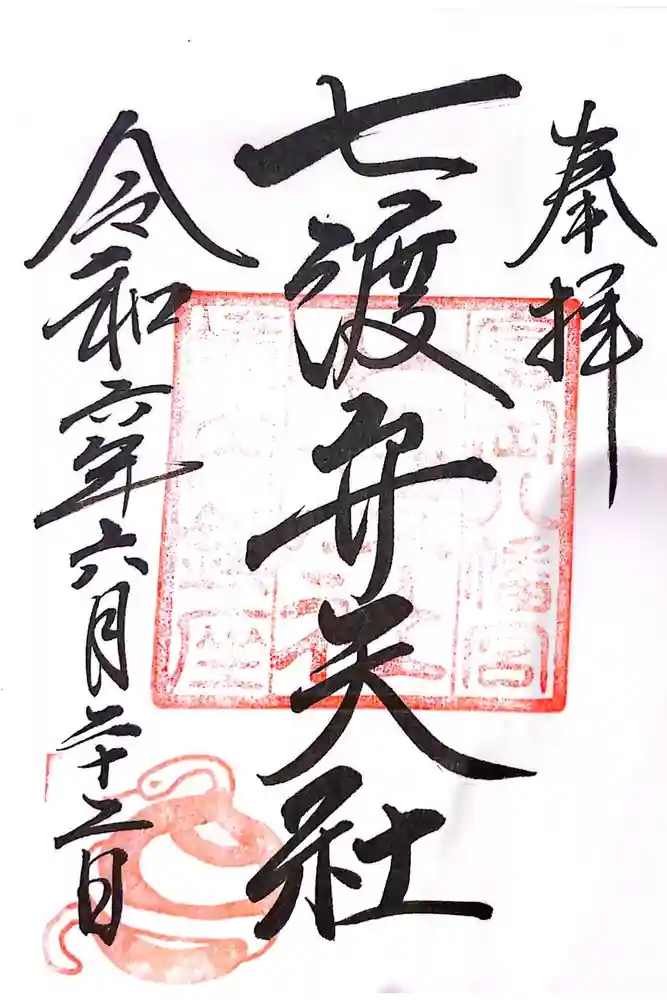 奉拝
七渡弁天社
令和六年六月二十二日